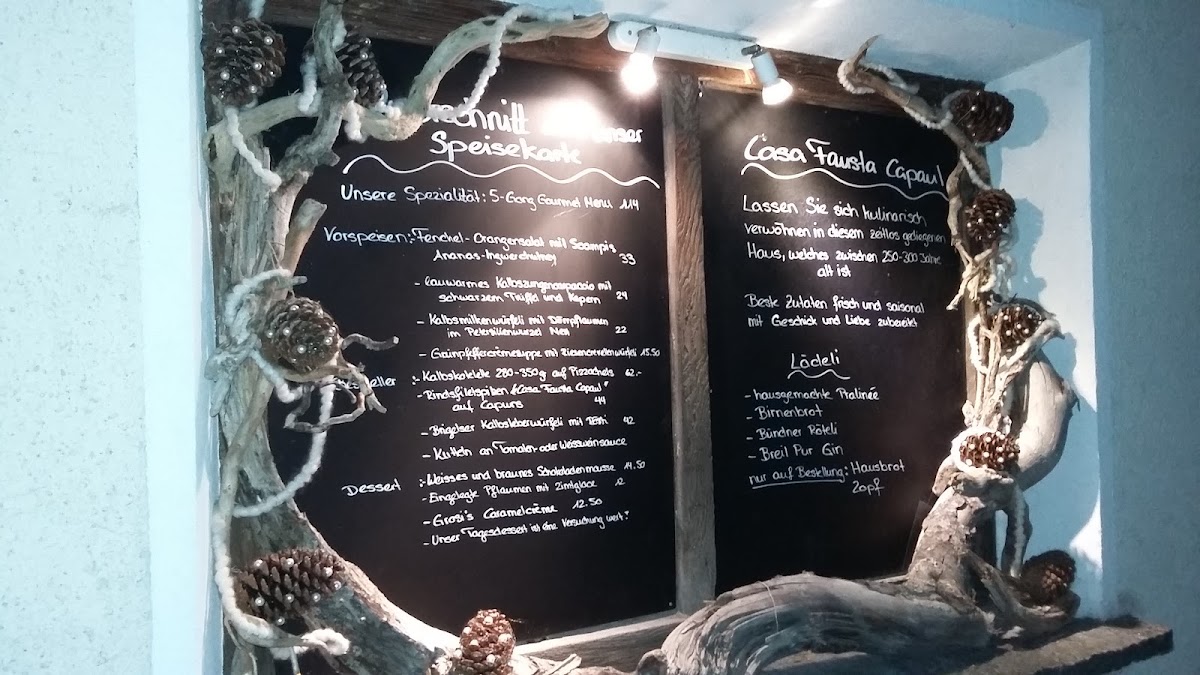 unser
Speisekarte
Unsere Spezialität: 5-Gang Gourmet Menu 114
Vorspeisen:- Fenchel-Orangensalat mit Scampis
Ananas-Ingwerchutney 33
- lauwarmes Kalbszungencarpaccio mit
schwarzem Trüffel und Kapern 24
- Kalbsmilkenwürfeli mit Dörrpflaumen
im Petersilienwurzel Nest 22
- Grünpfeffercrèmesuppe mit 15.50
:- Kalbskotelette 280-350g auf Pizzachels 62.-
- Rindsfiletspitzen "Casa Fausta Capaul"
auf Capuns 44
- Brigelser Kalbsleberwürfeli mit Rösti 42
- Kutteln an Tomaten- oder Weissweinsauce
Dessert :- Weisses und braunes Schokoladenmousse 14.50
- Eingelegte Pflaumen mit Zimtglacé 12
- Grosi's Caramelcrème 12.50
- Unser Tagesdessert ist eine Versuchung wert!
Casa Fausta Capaul
Lassen Sie sich kulinarisch
verwöhnen in diesem zeitlos gediegenen
Haus, welches zwischen 250-300 Jahre
alt ist
Beste Zutaten frisch und saisonal
mit Geschick und Liebe zubereitet
Lädeli
- hausgemachte Pralinée
- Birnenbrot
- Bündner Röteli
- Breil Pur Gin
nur auf Bestellung: Hausbrot
Zopf